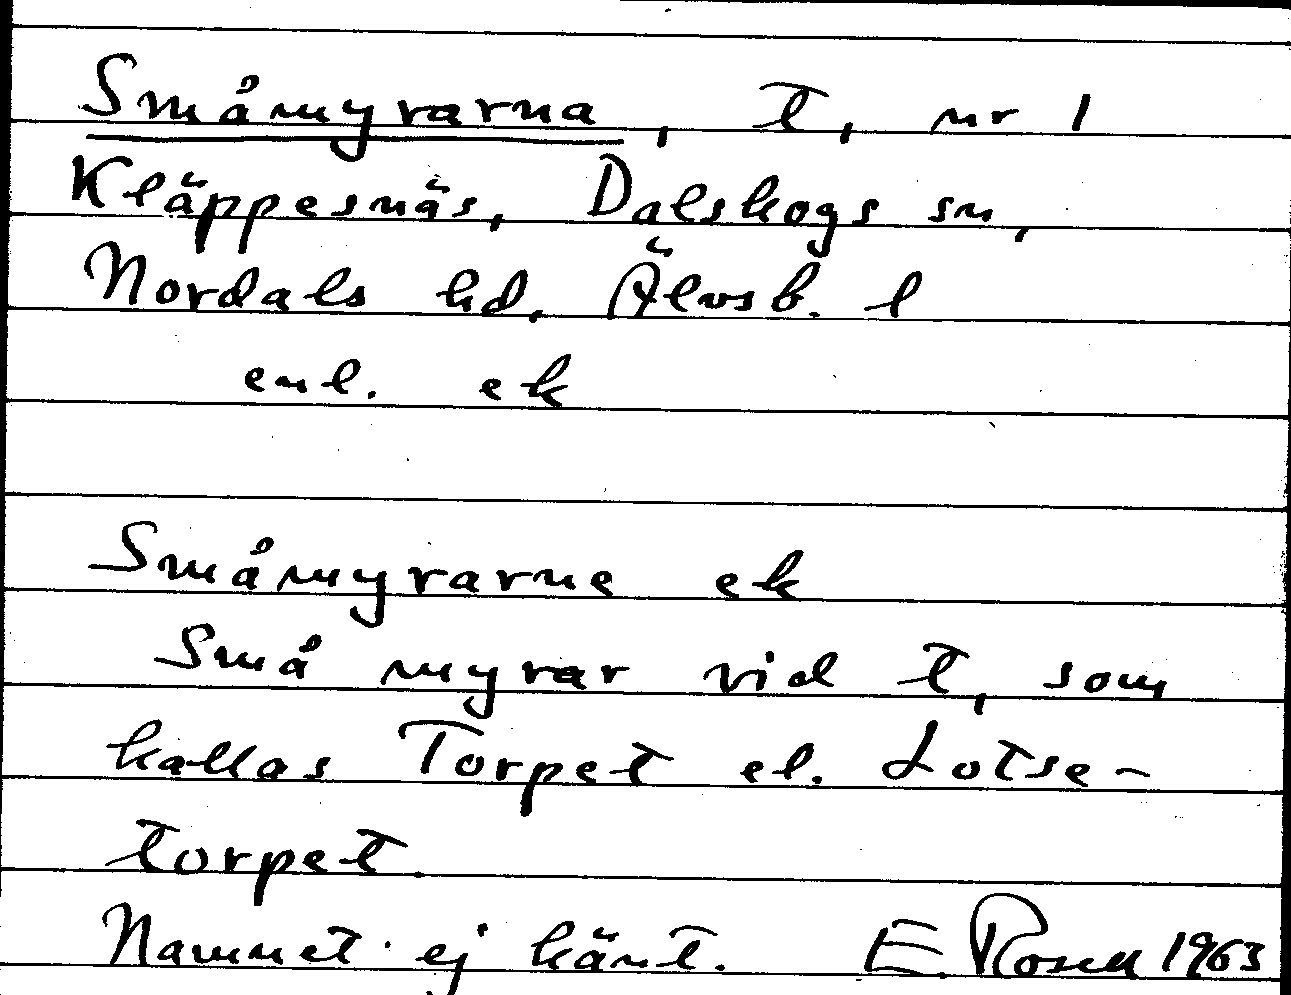 Småmyrarna, t, nr 1
Kläppesnäs, Dalskogs sn,
Nordals hd, Älvsb. l
enl. ek
Småmyrarne ek
Små myrar vid t, som
kallas Torpet el. Lotse-
torpet.
Namnet ej känt. E. Rosell 1963